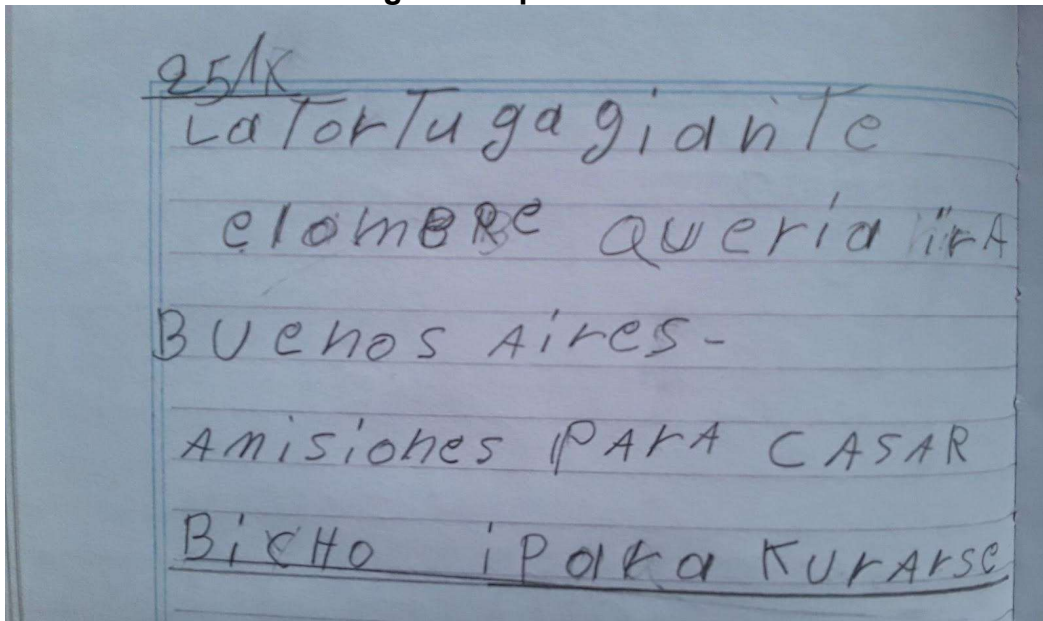 LaTorTugagianTe
elomBRe Quería irA
BUenos Aires-
Amisiones PArA CASAR
BicHo iPara KUrArse